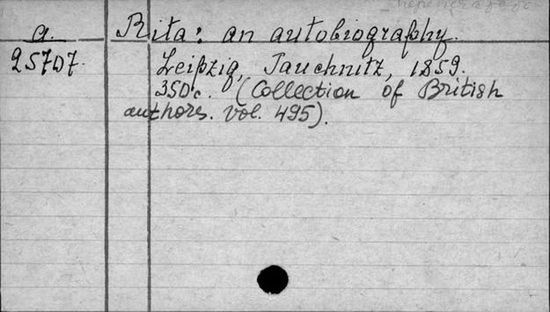 a.
25707.
Rita: an autobiography.
Leipzig, Tauchnitz, 1859.
350c. (Collection of British
authors. Vol. 495).